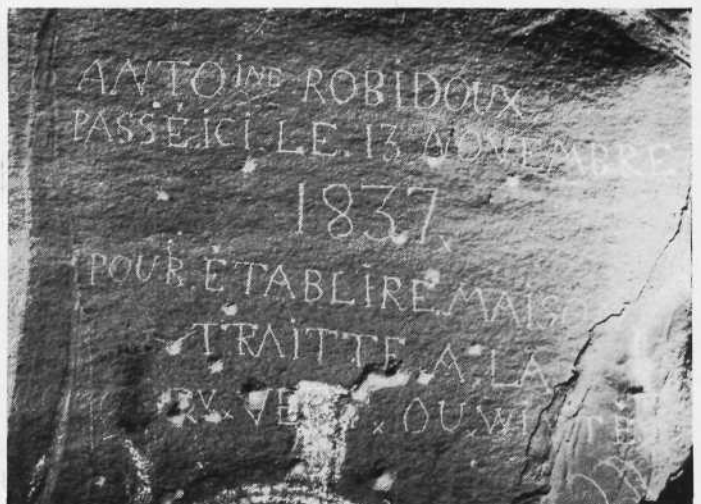 ANTOINE ROBIDOUX
PASSÉ ICI LE 13 NOVEMBRE
1837
POUR ÉTABLIRE MAISO
TRAITTE A LA
RV VERT OU WINTÉ